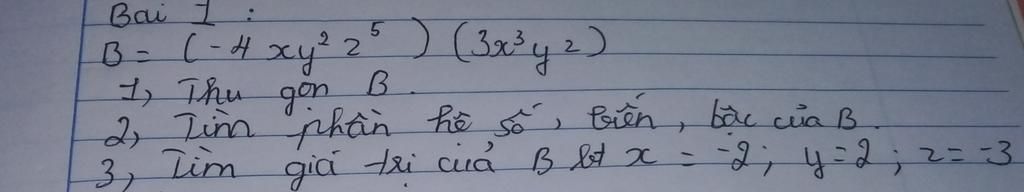 Bài 1 :
B = (-4xy²z⁵) (3x³yz)
1, Thu gọn B.
2, Tìm phần hệ số, biến, bậc của B.
3, Tìm giá trị của B bt x = -2; y=2; z=-3